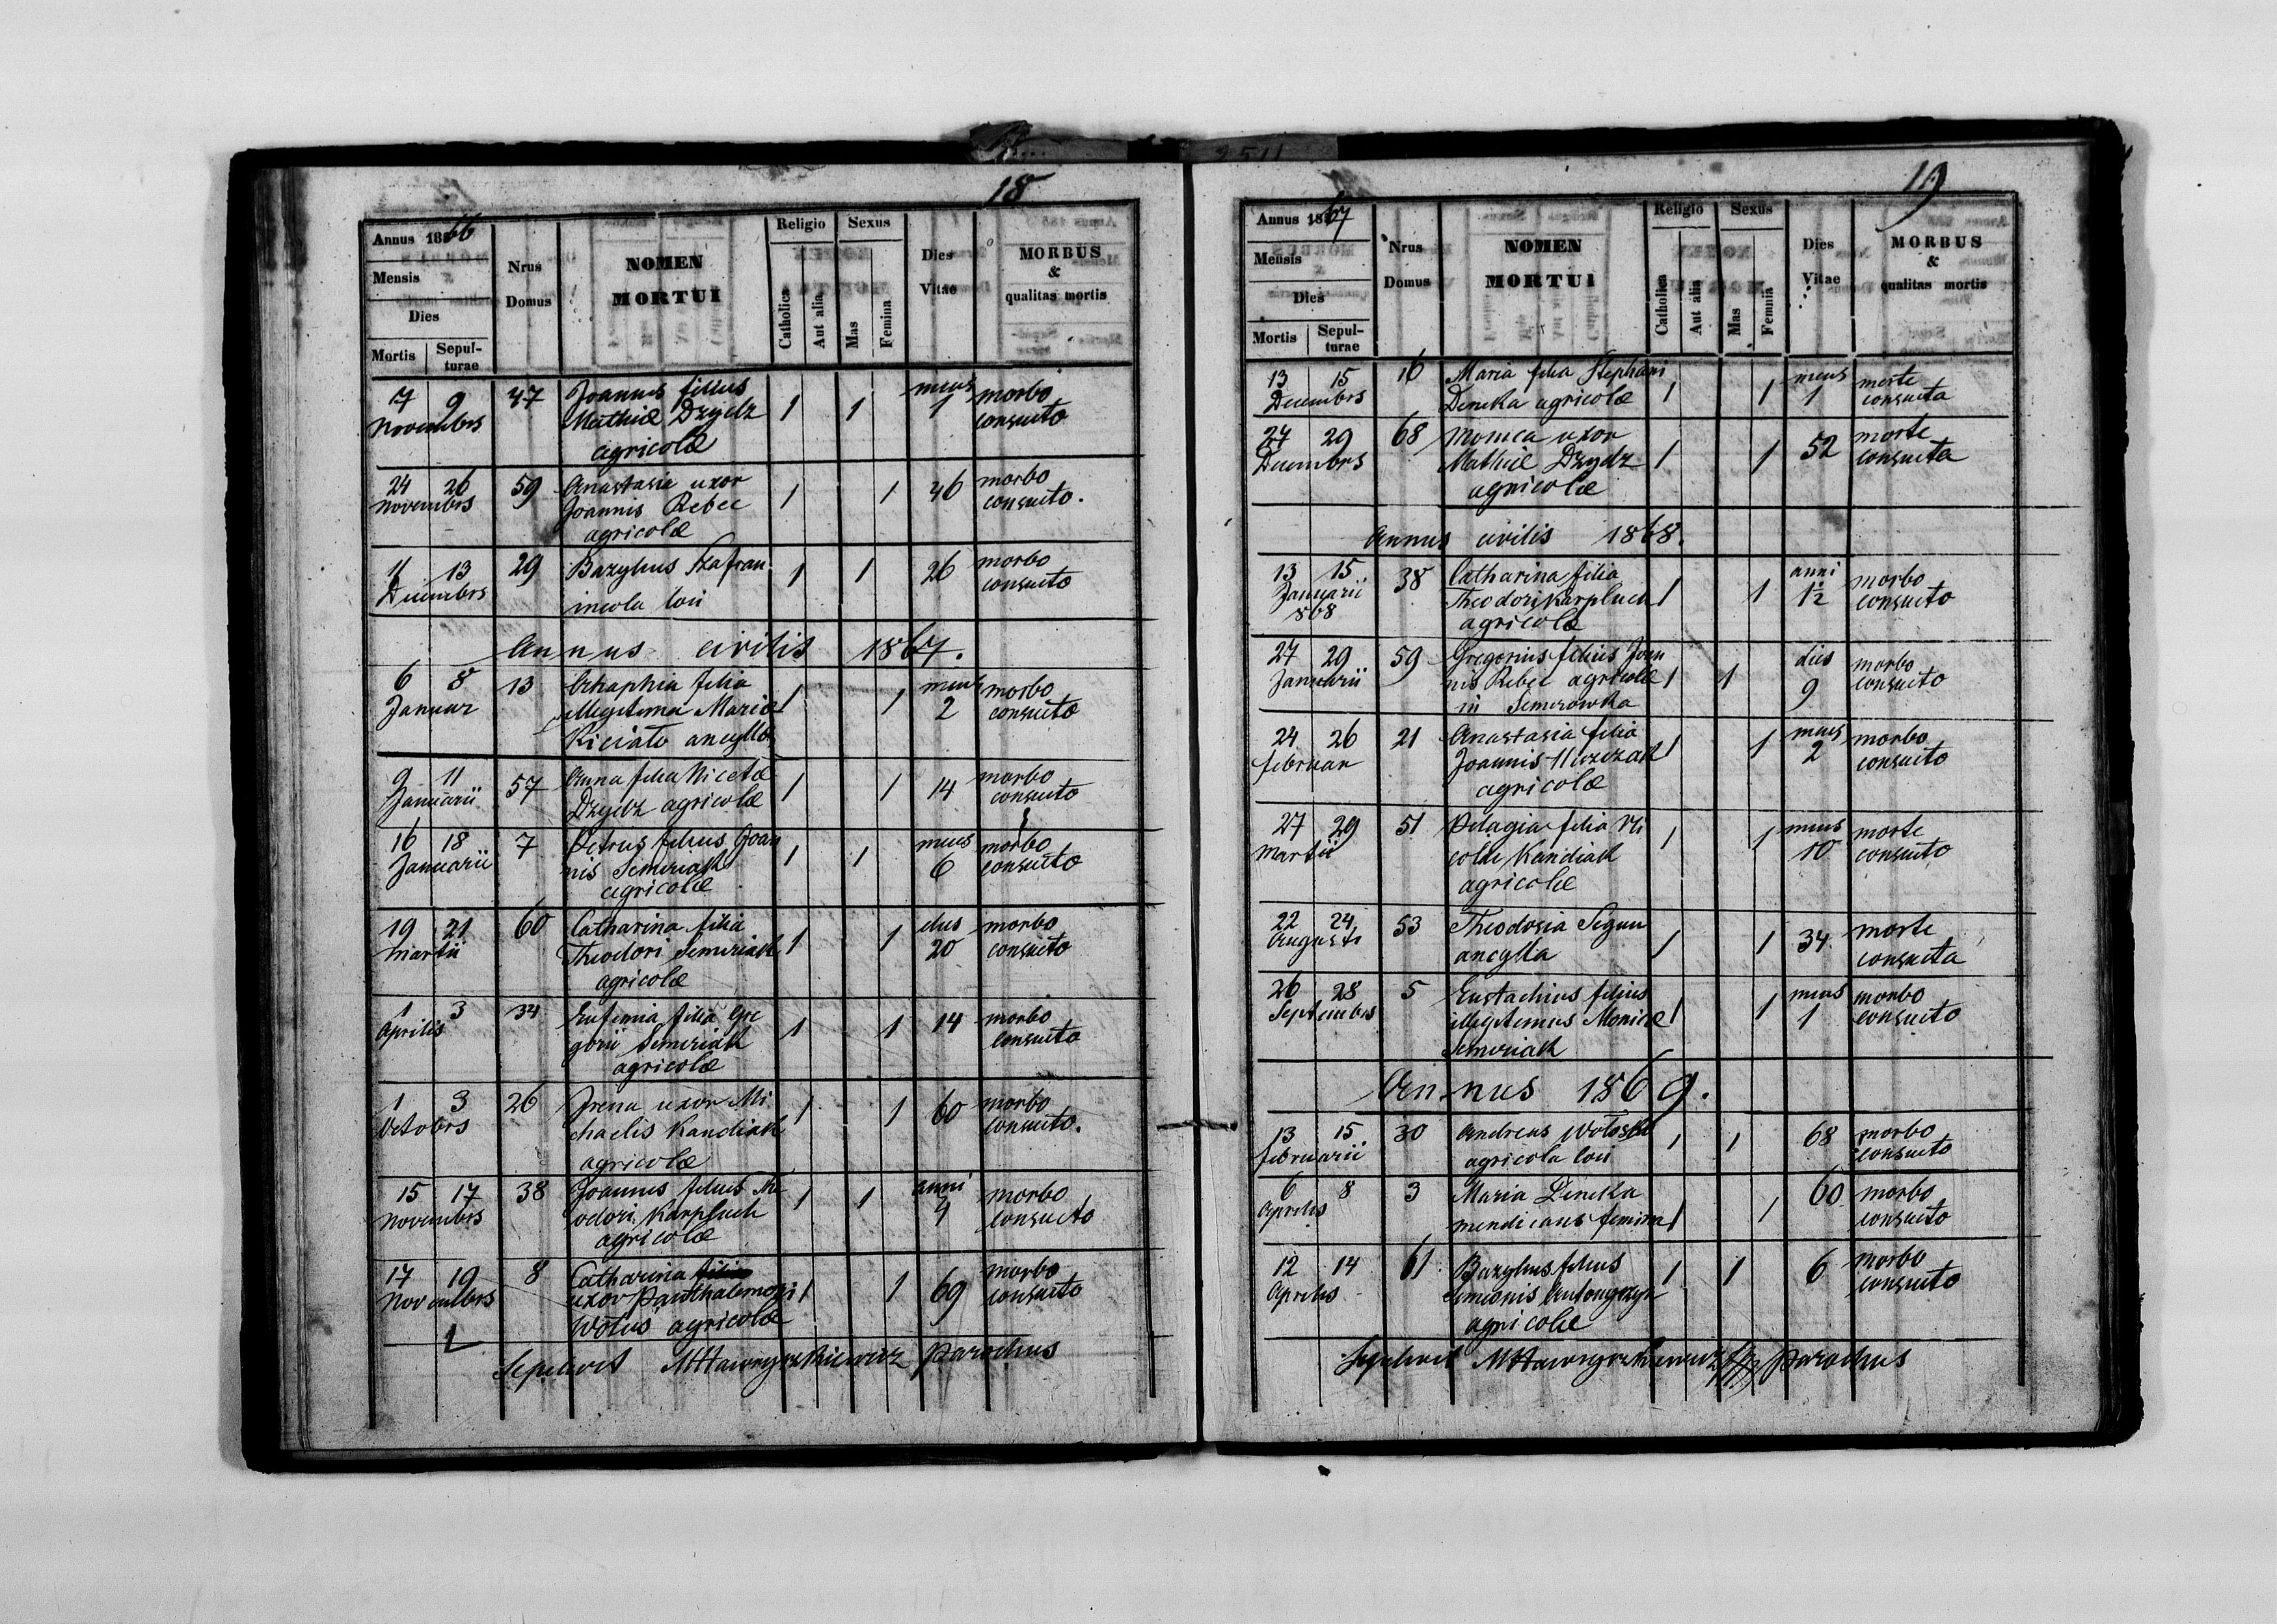 18
Annus 1866
Mensis
Dies
Mortis
Sepulturae
Nrus Domus
NOMEN MORTUI
Religio
Catholica
Aut alia
Sexus
Mas
Femina
Dies Vitae
MORBUS & qualitas mortis
7 9 47 Joannes filius mens morbo
Novembris Mathiæ Dzydz 1 1 1 consueto
agricolæ
24 26 59 Anastasia uxor morbo
Novembris Joannis Rebec 1 1 46 consueto.
agricolæ
11 13 29 Bazylius Szafran 1 1 26 morbo
Decembris incola loci consueto
Annus civilis 1867.
6 8 13 filia mens morbo
Januar illegitima Mariæ 1 1 2 consueto
ancyllæ
9 11 57 Anna filia Nicetæ 1 1 14 morbo
Januarii Dzydz agricolæ consueto
16 18 7 Petrus filius Joan mens morbo
Januarii nis Semeriak 1 1 6 consueto
agricolæ
19 21 60 Catharina filia dies morbo
Martii Theodori Semeriak 1 1 20 consueto
agricolæ
1 3 34 Eufemia filia Gre morbo
Aprilis gorii Semeriak 1 1 14 consueto
agricolæ
1 3 26 Irena uxor Mi 1 1 60 morbo
Octobris chaelis Kandiak consueto.
agricolæ
15 17 38 Joannes filius The 1 1 anni morbo
Novembris odori Karpluch 4 consueto
agricolæ
17 19 8 Catharina filia morbo
Novembris uxor Panthalemoni 1 1 69 consueto
agricolæ
Sepelivit MHawryszkiewicz Parochus
19
Annus 1867
Mensis
Dies
Mortis
Sepulturae
Nrus Domus
NOMEN MORTUI
Religio
Catholica
Aut alia
Sexus
Mas
Femnia
Dies Vitae
MORBUS & qualitas mortis
13 15 16 Maria filia Stephani mens morte
Decembris Deneka agricolæ 1 1 1 consueta
27 29 68 Monica uxor morte
Decembris Mathiæ Dzydz 1 1 52 consueta
agricolæ
Annus civilis 1868.
13 15 38 Catharina filia anni morbo
Januarii Theodori Karpluch 1 1 1½ consueto
868 agricolæ
27 29 59 Gregorius filius Joan dies morbo
Januarii nis Rebec agricolæ 1 1 9 consueto
in Semerowka
24 26 21 Anastasia filia mens morbo
Februar Joannis 1 1 2 consueto
agricolæ
27 29 51 Pelagia filia Ni 1 1 mens morte
Martii colai Kandiak 10 consueto
agricolæ
22 24 53 Theodosia morte
Augusti ancylla 1 1 34 consueta
26 28 5 Eustachius filius mens morbo
Septembris illegitimus Monicæ 1 1 1 consueto
Semeriak
Annus 1869.
13 15 30 Andreas 1 1 68 morbo
Februarii agricola loci consueto
6 8 3 Maria Deneka 60 morbo
Aprilis mendicans femina 1 1 consueto
12 14 61 Bazylius filius 1 1 6 morbo
Aprilis Simeonis consueto
agricolæ
Sepelivit MHawryszkiewicz Parochus